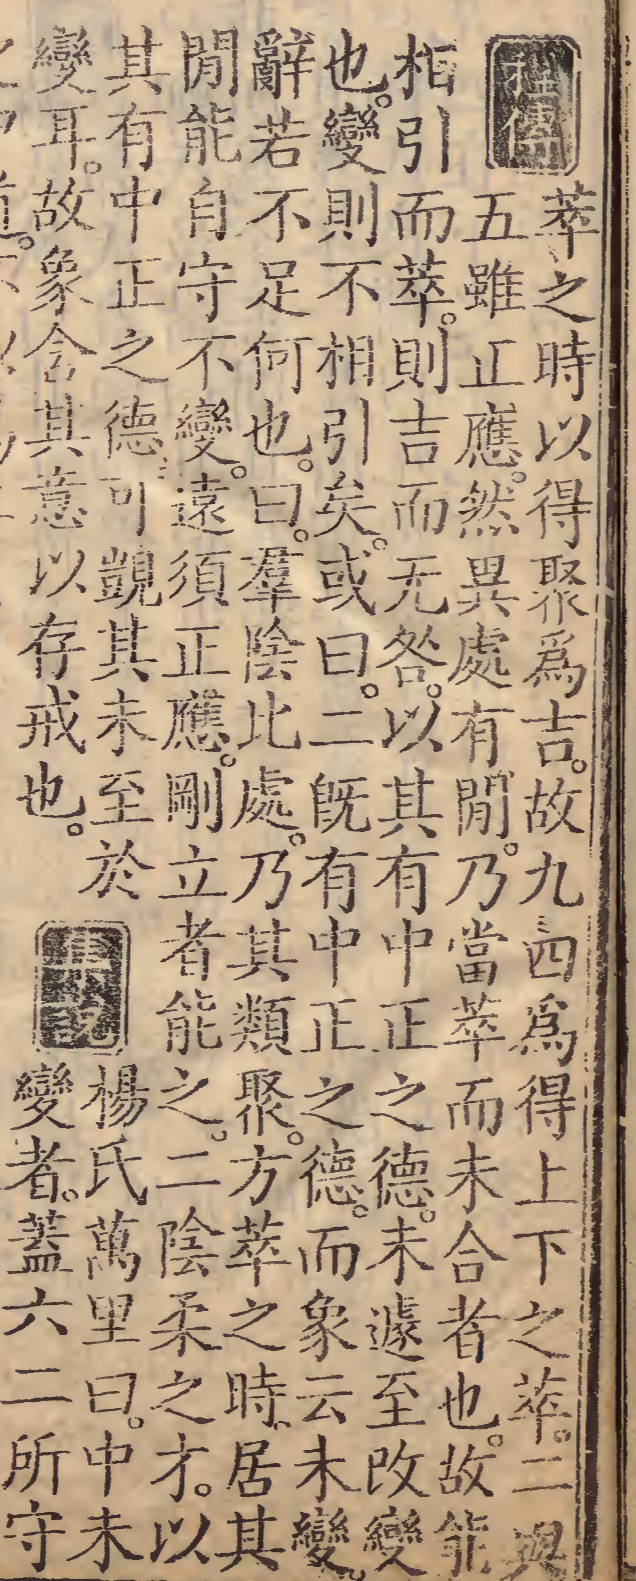 程傳
萃之時以得聚爲吉。故九四爲得上下之萃。二與
五雖正應。然異處有閒。乃當萃而未合者也。故能
相引而萃。則吉而无咎。以其有中正之德。未遽至改變
也。變則不相引矣。或曰。二旣有中正之德。而象云未變。
辭若不足何也。曰。羣陰比處。乃其類聚。方萃之時。居其
閒能自守不變。遠須正應。剛立者能之。二陰柔之才。以
其有中正之德。可覬其未至於
變耳。故象含其意以存戒也。
集說
楊氏萬里曰。中未
變者。蓋六二所守